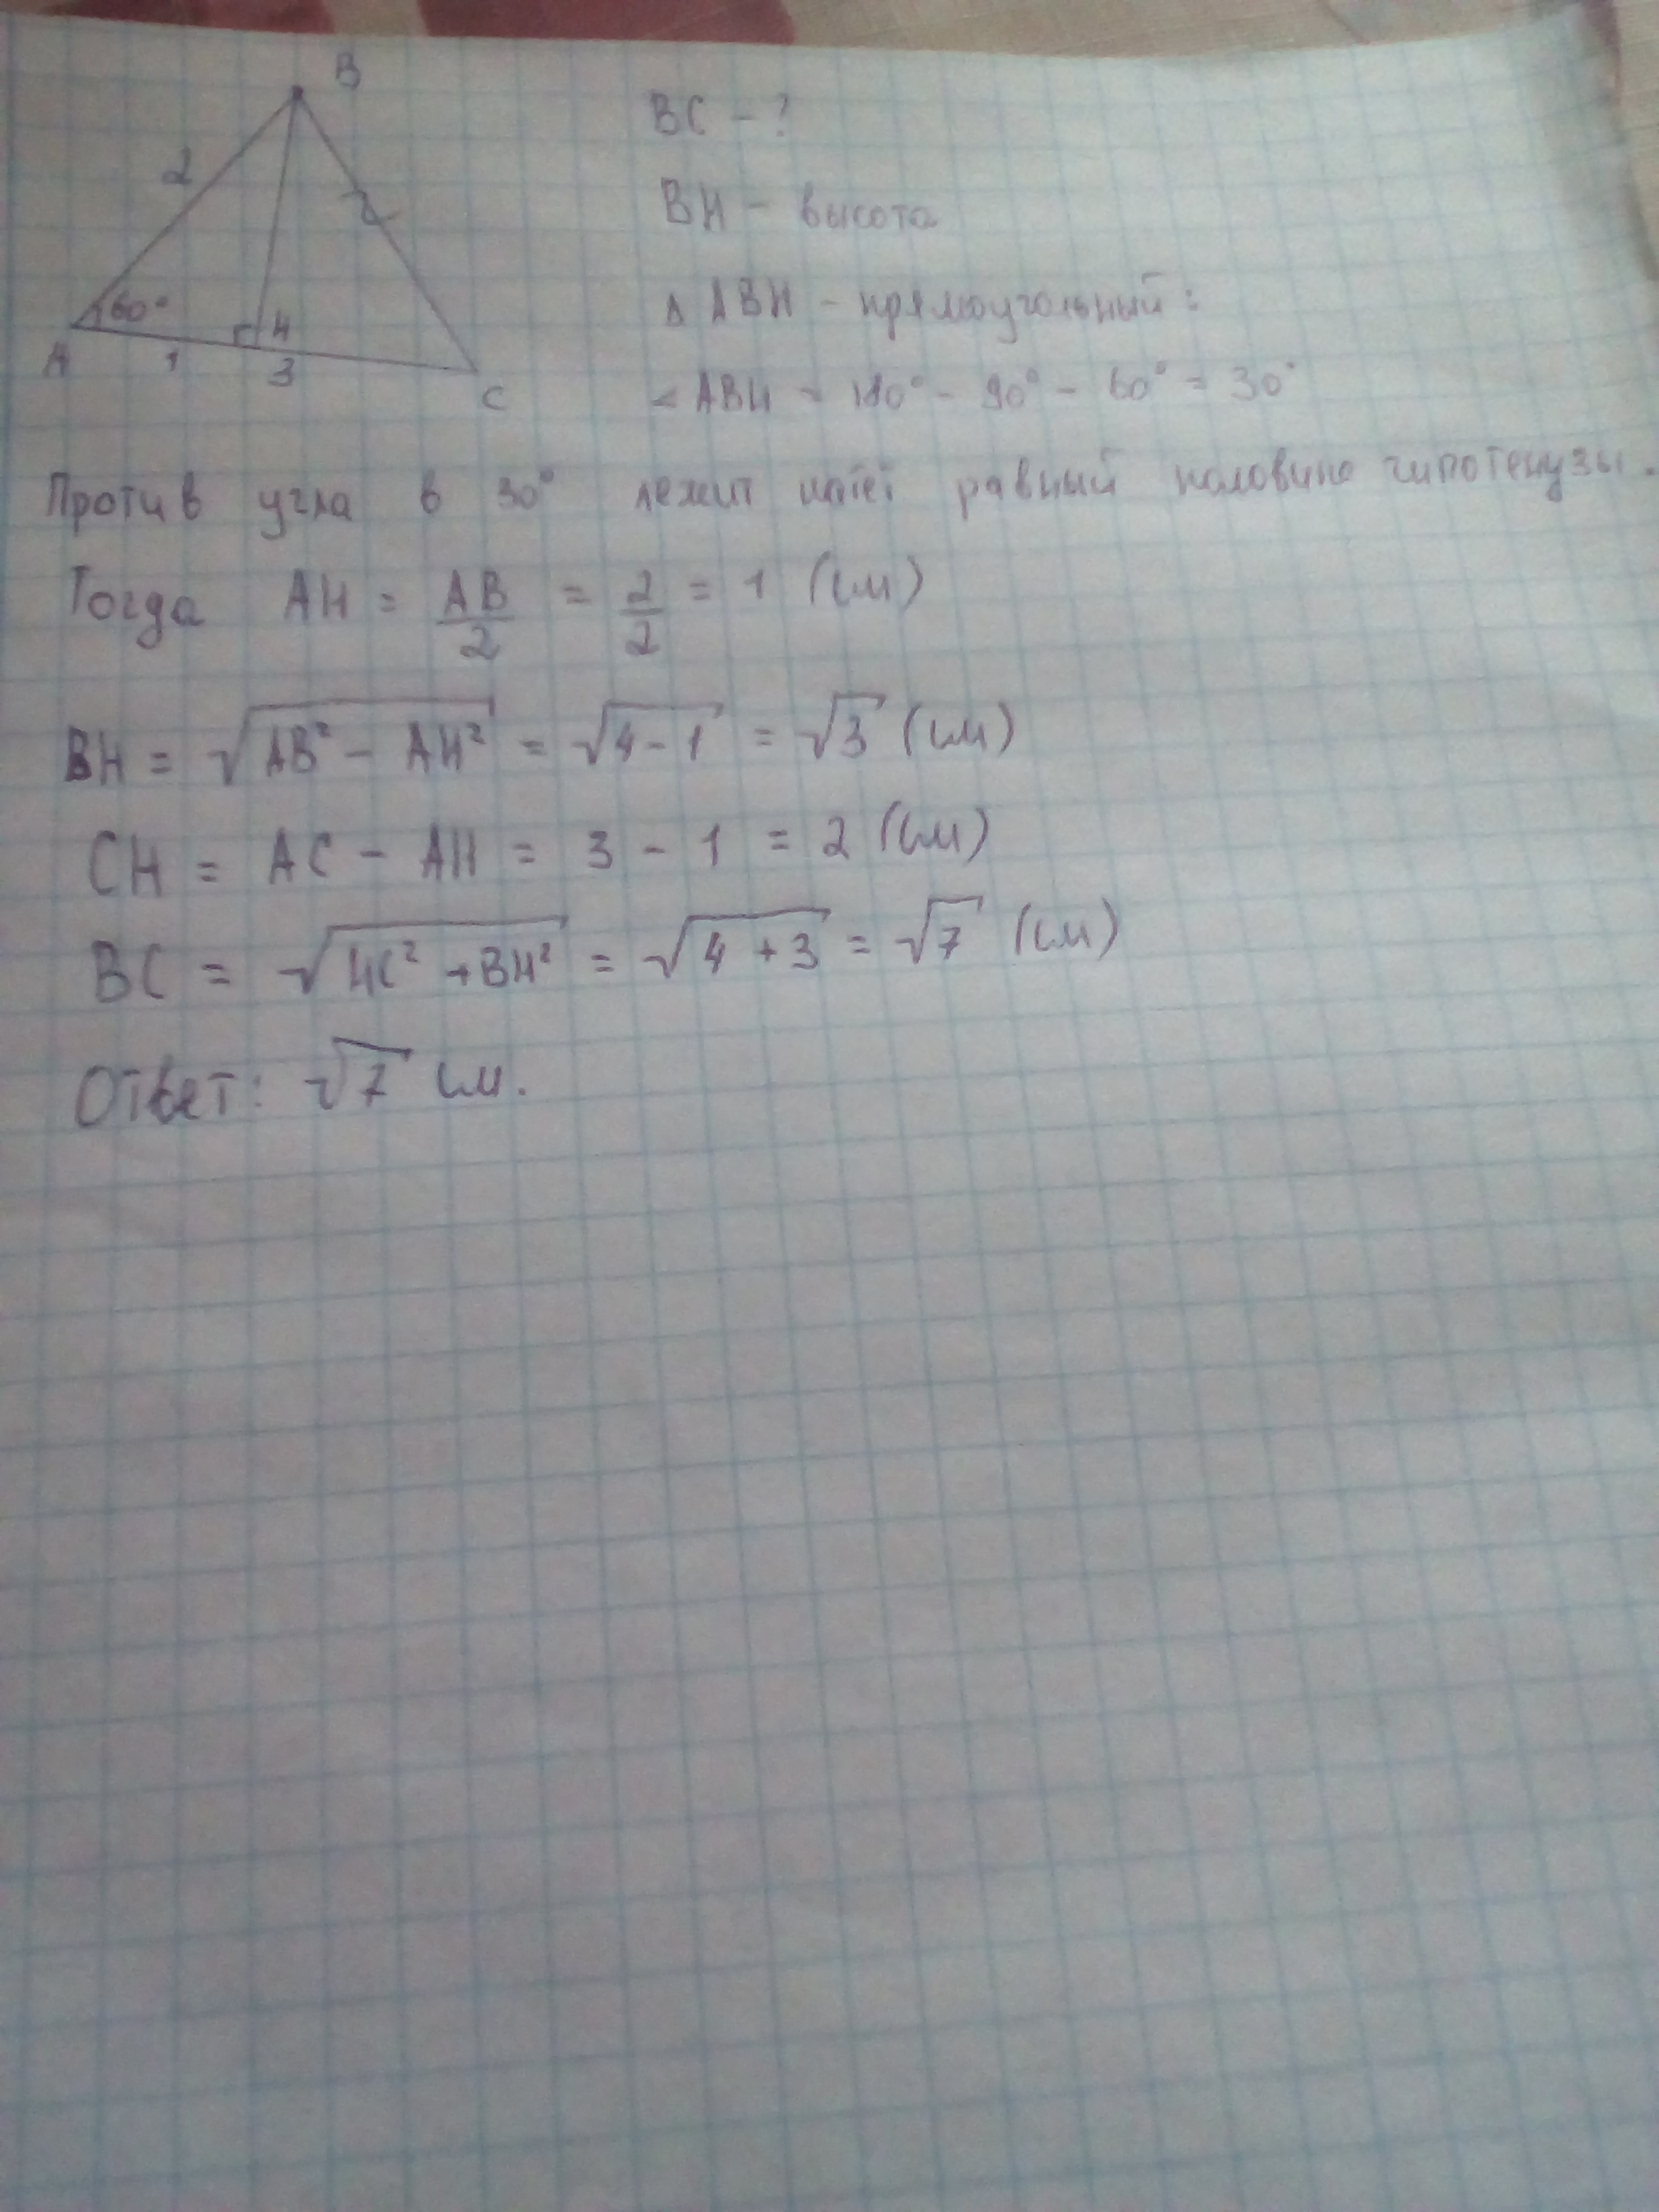 B
2
?
60°
H
A
1
3
C
BC - ?
BH - высота
Δ ABH - прямоугольный:
∠ABH = 180° - 90° - 60° = 30°
Против угла в 30° лежит катет равный половине гипотенузы.
Тогда AH = AB/2 = 2/2 = 1 (см)
BH = √(AB² - AH²) = √(4-1) = √3 (см)
CH = AC - AH = 3 - 1 = 2 (см)
BC = √(HC² + BH²) = √(4 + 3) = √7 (см)
Ответ: √7 см.